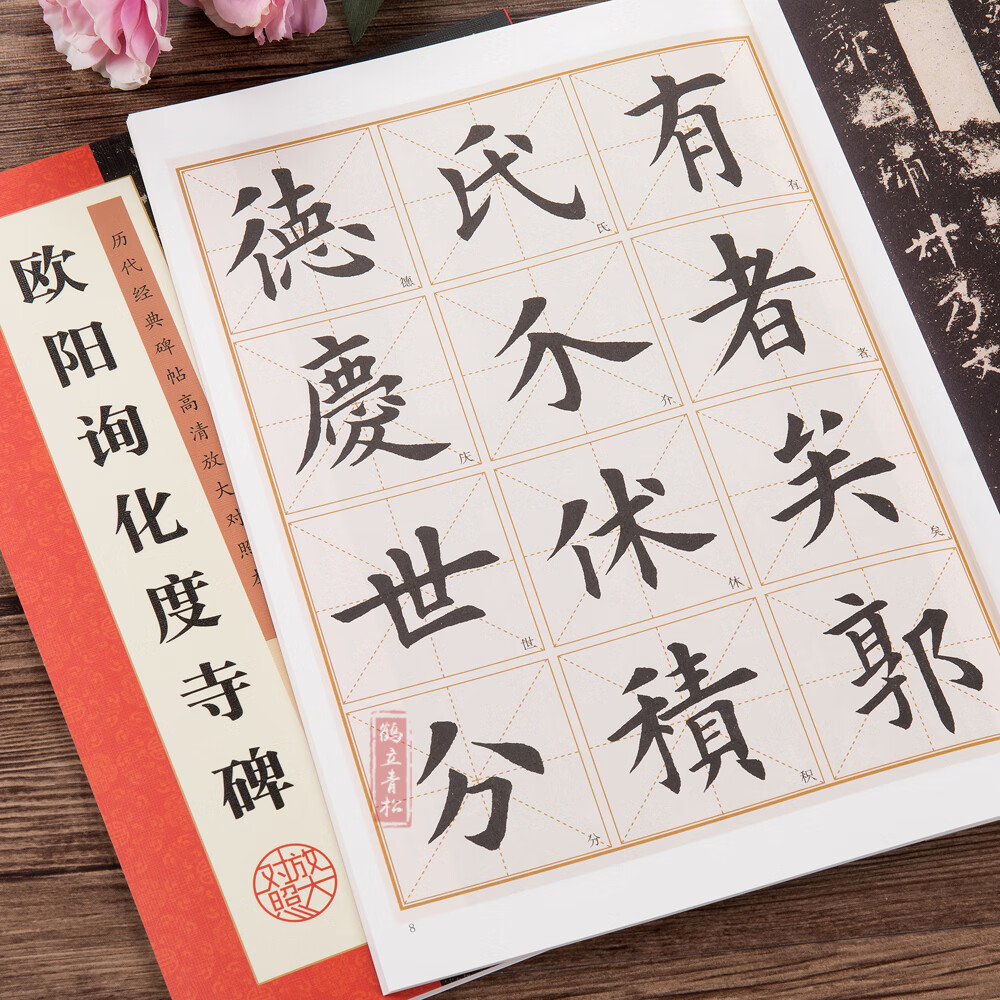 欧阳询化度寺碑
历代经典碑帖高清放大对照本
放大对照
有者矣郭
有 者 矣
氏介休積
氏 介 休 积
德慶世分
德 庆 世 分
鹤立青松
8